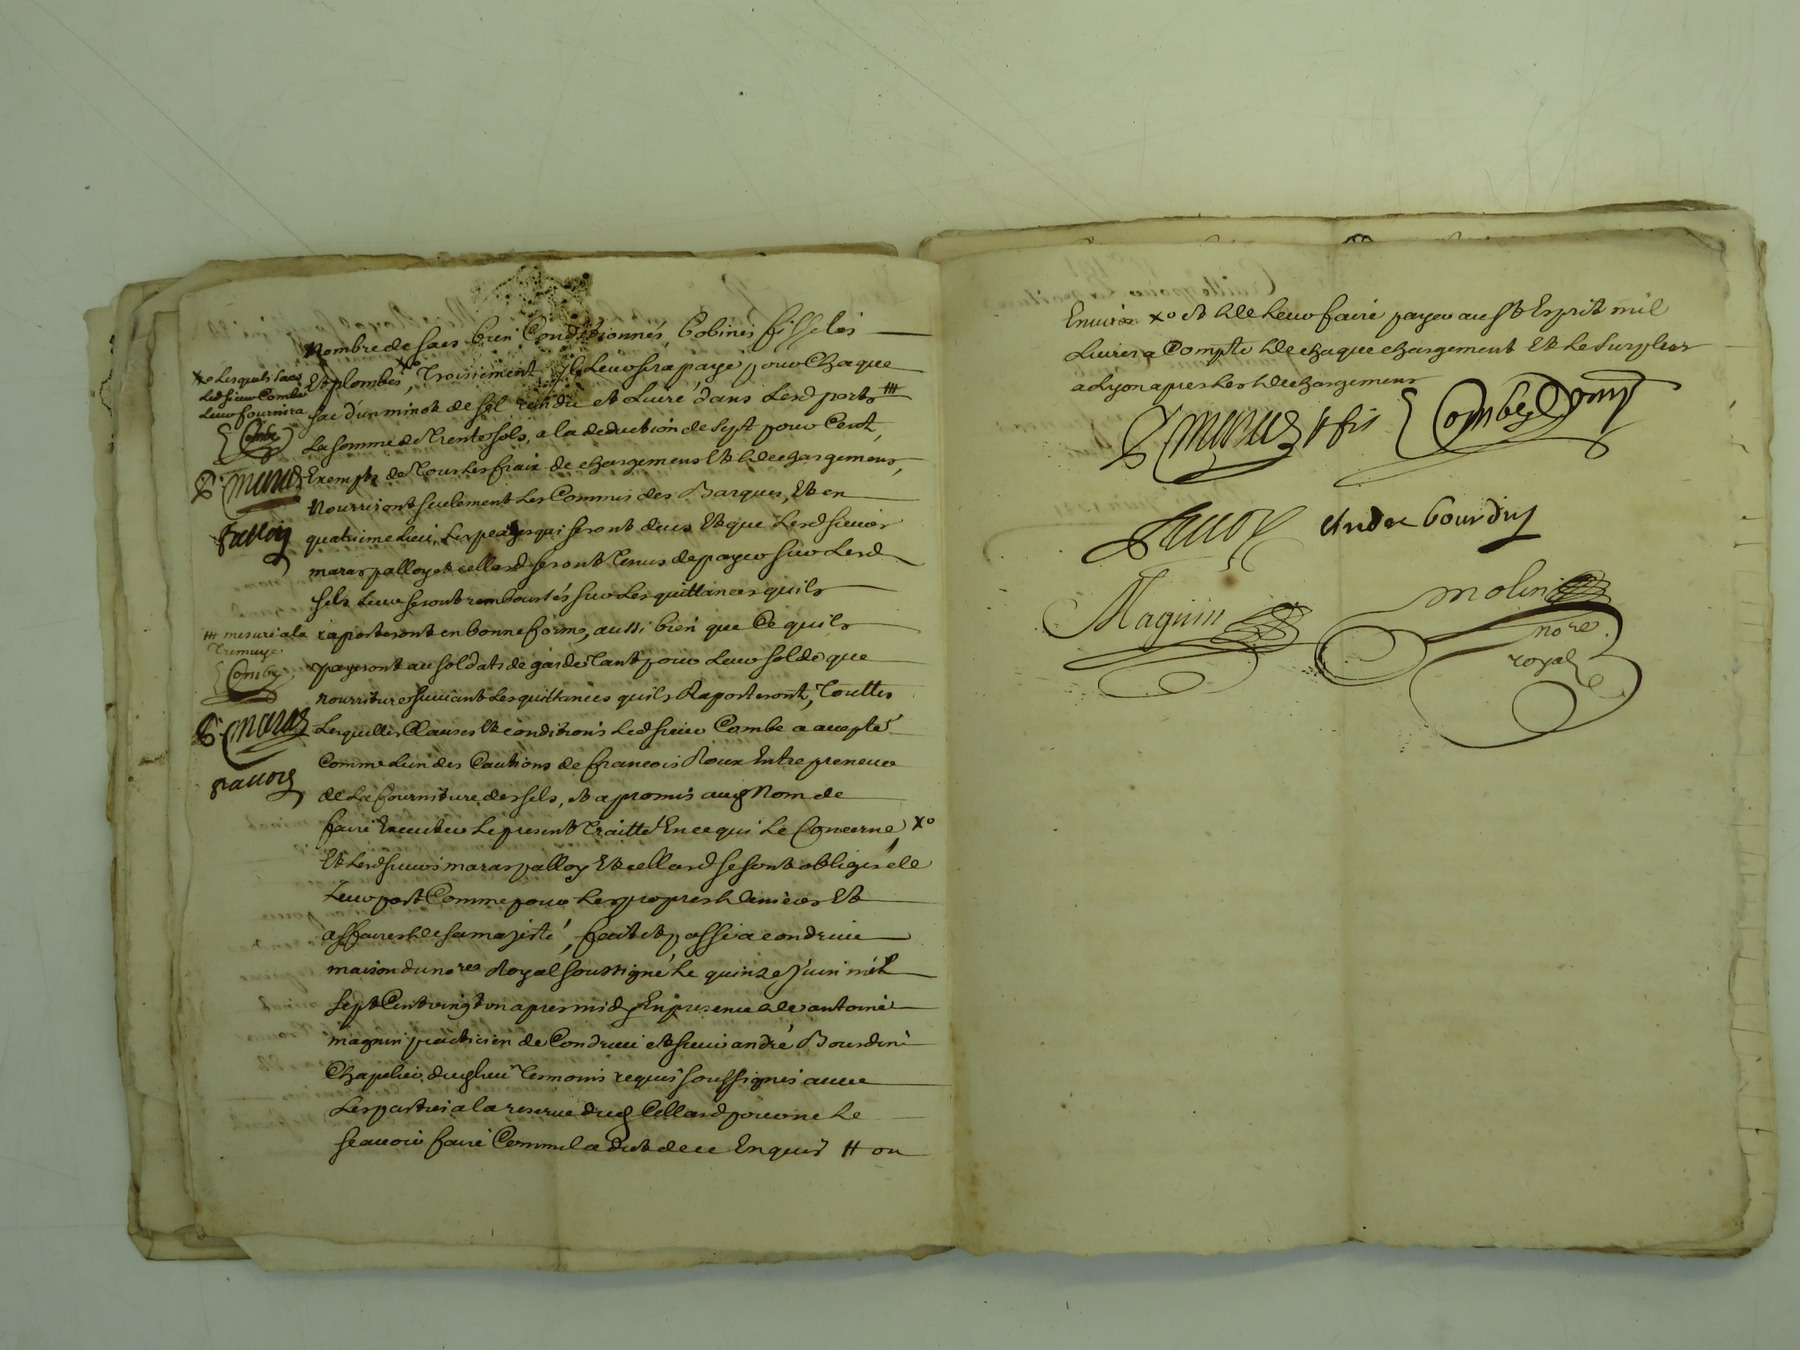 nombre de sacs bien Conditionnés, Cobinés fisselés
Et plombés xo Troisiement Il Leur sera payé pour Chaque
sac d'un minot de sel rendu et Livré dans Lesd ports ###
La somme de Trente sols, a la deduction de sept pour Cent,
Exempte de Tous Les fraix de chargemens Et de dechargemens,
Nourriront seulement Les Commis des Barques, Et en
quatrieme Lieu, Les peages qui seront deus Et que Lesd sieurs
maras palloy et cellard seront Tenus de payer sur Lesd
sels Leur seront remboursés sur Les quittances quils
raporteront en bonne forme, aussi bien que Ce quils
payeront au soldats de garde Tant pour Leur solde que
nourriture suivant Les quittances quils Raporteront, Touttes
Lesquelles Clauses Et conditions Led sieur Combe a accepté
Comme Lun des Cautions de francois Roux Entrepreneur
de La fourniture des sels, et a promis aud Nom de
faire Executer Le present Traitté En ce qui Le Concerne, xo
Et Lesd sieurs maras palloy Et cellard se sont obligés de
Leur part Comme pour Les propres deniers Et
affaires de sa majesté, fait et passé a condrieu
maison du nore Royal soussigné Le quinze Juin mil
sept Cent vingt un apres midy En presence de antoine
magnin praticien de Condrieu et sieur andré Bourdin
Chapelier dud lieu Temoins requis soussignés avec
Les parties a la reserve dud Cellard pour ne Le
scavoir faire Comme la dit de ce Enquis # ou
xo Lesquels sacs
Led sieur Combe
Leur fournira
Combe
maras
### mesure a la
Tremuye
Combe
maras
Environ xo et de Leur faire payer au St Esprit mil
Livres a Compte de chaque chargement Et Le surplus
a Lyon apres Les dechargemens
maras & fis
Combe
Andre bourdin
Magnin
molin
nore
royal